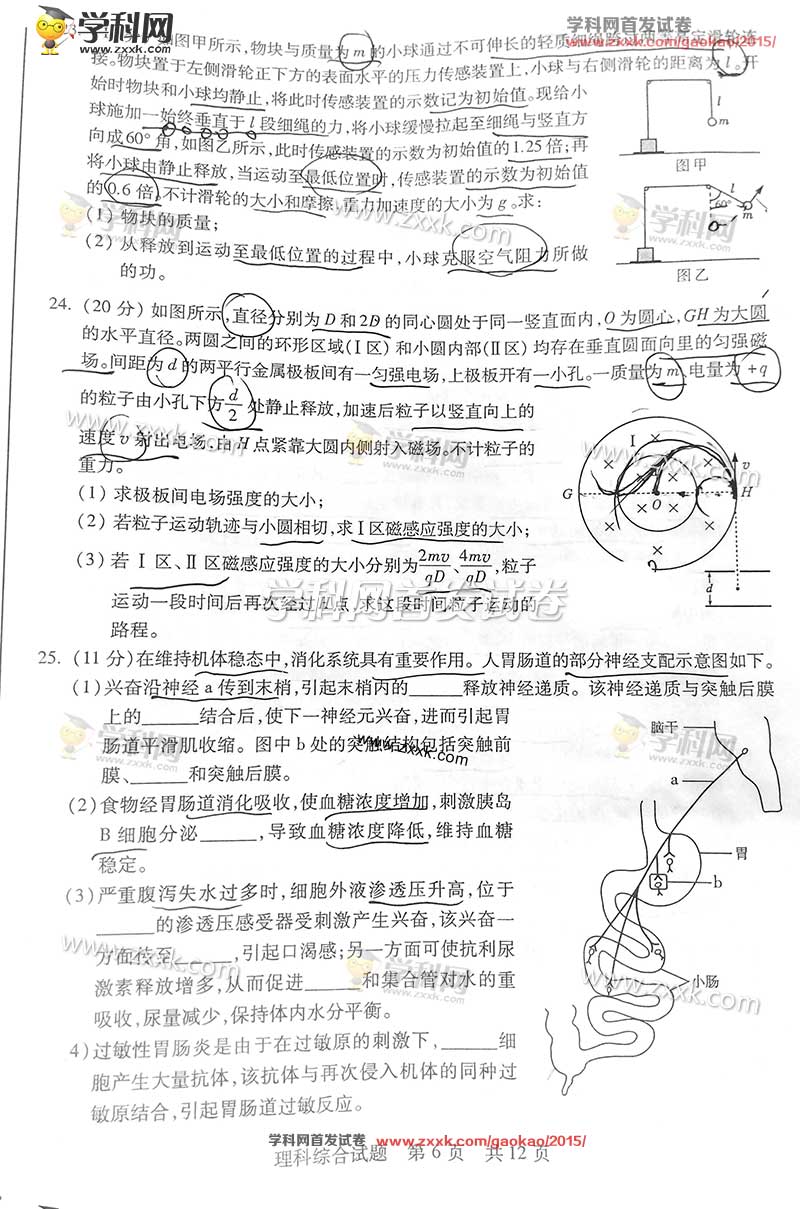 学科网首发试卷 www.zxxk.com/gaokao/2015/
如图甲所示,物块与质量为m的小球通过不可伸长的轻质细绳
接。物块置于左侧滑轮正下方的表面水平的压力传感装置上,小球与右侧滑轮的距离为l。开
始时物块和小球均静止,将此时传感装置的示数记为初始值。现给小
球施加一始终垂直于l段细绳的力,将小球缓慢拉起至细绳与竖直方
向成60°角,如图乙所示,此时传感装置的示数为初始值的1.25倍;再
将小球由静止释放,当运动至最低位置时,传感装置的示数为初始值
的0.6倍。不计滑轮的大小和摩擦,重力加速度的大小为g。求:
(1) 物块的质量;
(2) 从释放到运动至最低位置的过程中,小球克服空气阻力所做
的功。
l
m
图甲
l
60°
m
图乙
24. (20分) 如图所示,直径分别为D和2D的同心圆处于同一竖直面内,O为圆心,GH为大圆
的水平直径。两圆之间的环形区域(Ⅰ区)和小圆内部(Ⅱ区)均存在垂直圆面向里的匀强磁
场。间距为d的两平行金属极板间有一匀强电场,上极板开有一小孔。一质量为m、电量为+q
的粒子由小孔下方d/2处静止释放,加速后粒子以竖直向上的
速度v射出电场,由H点紧靠大圆内侧射入磁场。不计粒子的
重力。
(1) 求极板间电场强度的大小;
(2) 若粒子运动轨迹与小圆相切,求Ⅰ区磁感应强度的大小;
(3) 若Ⅰ区、Ⅱ区磁感应强度的大小分别为2mv/qD、4mv/qD,粒子
运动一段时间后再次经过H点,求这段时间粒子运动的
路程。
Ⅰ
G
O
H
v
d
25. (11分)在维持机体稳态中,消化系统具有重要作用。人胃肠道的部分神经支配示意图如下。
(1)兴奋沿神经a传到末梢,引起末梢内的______释放神经递质。该神经递质与突触后膜
上的______结合后,使下一神经元兴奋,进而引起胃
肠道平滑肌收缩。图中b处的突触结构包括突触前
膜、______和突触后膜。
(2)食物经胃肠道消化吸收,使血糖浓度增加,刺激胰岛
B细胞分泌______,导致血糖浓度降低,维持血糖
稳定。
(3)严重腹泻失水过多时,细胞外液渗透压升高,位于
______的渗透压感受器受刺激产生兴奋,该兴奋一
方面传至______,引起口渴感;另一方面可使抗利尿
激素释放增多,从而促进______和集合管对水的重
吸收,尿量减少,保持体内水分平衡。
4)过敏性胃肠炎是由于在过敏原的刺激下,______细
胞产生大量抗体,该抗体与再次侵入机体的同种过
敏原结合,引起胃肠道过敏反应。
脑干
a
胃
b
小肠
学科网首发试卷 www.zxxk.com/gaokao/2015/
理科综合试题 第6页 共12页
学科网
www.zxxk.com
学科网首发试卷